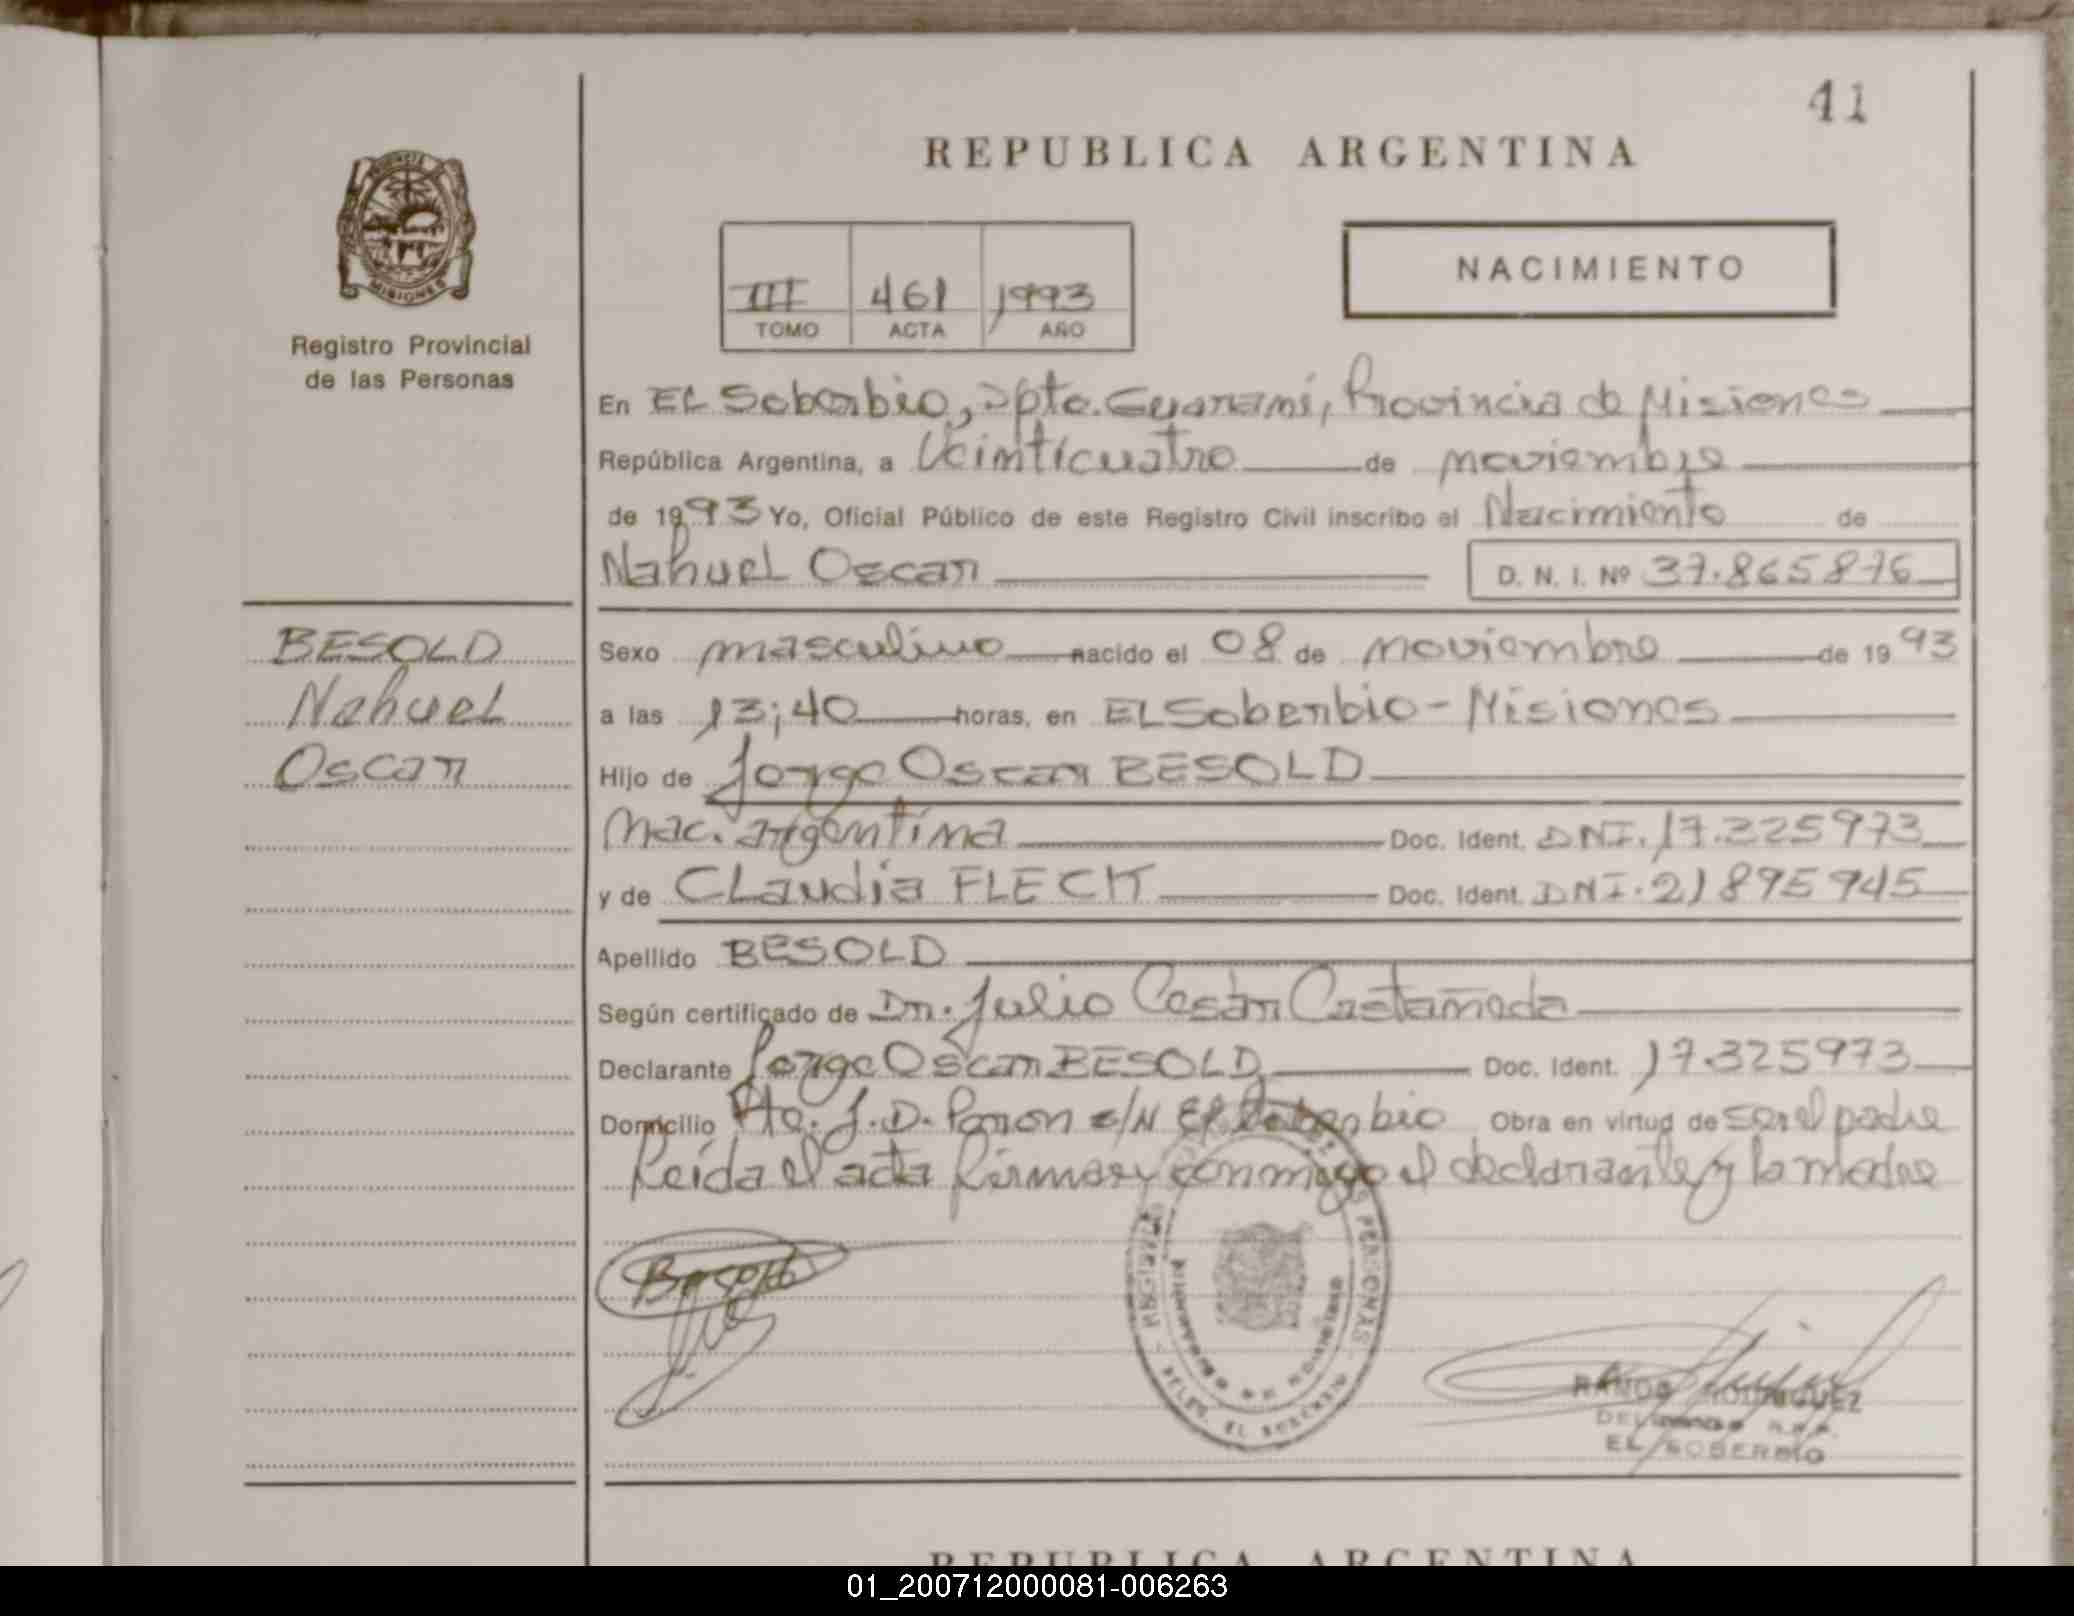 41
REPUBLICA ARGENTINA
MISIONES
Registro Provincial
de las Personas
III 461 1993
TOMO ACTA AÑO
NACIMIENTO
En El Soberbio, Dpto. Guaraní, Provincia de Misiones
República Argentina, a Veinticuatro de noviembre
de 1993 Yo, Oficial Público de este Registro Civil inscribo el Nacimiento de
Nahuel Oscar D. N. I. Nº 37.865876
BESOLD
Nahuel
Oscar
Sexo masculino nacido el 08 de noviembre de 1993
a las 13;40 horas, en El Soberbio - Misiones
Hijo de Jorge Oscar BESOLD
Nac. argentina Doc. Ident. DNI. 17.325973
y de Claudia FLECK Doc. Ident. DNI. 21895945
Apellido BESOLD
Según certificado de Dr. Julio Cesar Castañeda
Declarante Jorge Oscar BESOLD Doc. Ident. 17.325973
Domicilio Pte. J. D. Peron s/N El Soberbio Obra en virtud de ser el padre
Leída el acta firman conmigo el declarante y la madre
Besold
REGISTRO PERSONAS
DELEG. EL SOBERBIO
RAMOS RODRIGUEZ
EL SOBERBIO
REPUBLICA ARGENTINA
01_200712000081-006263